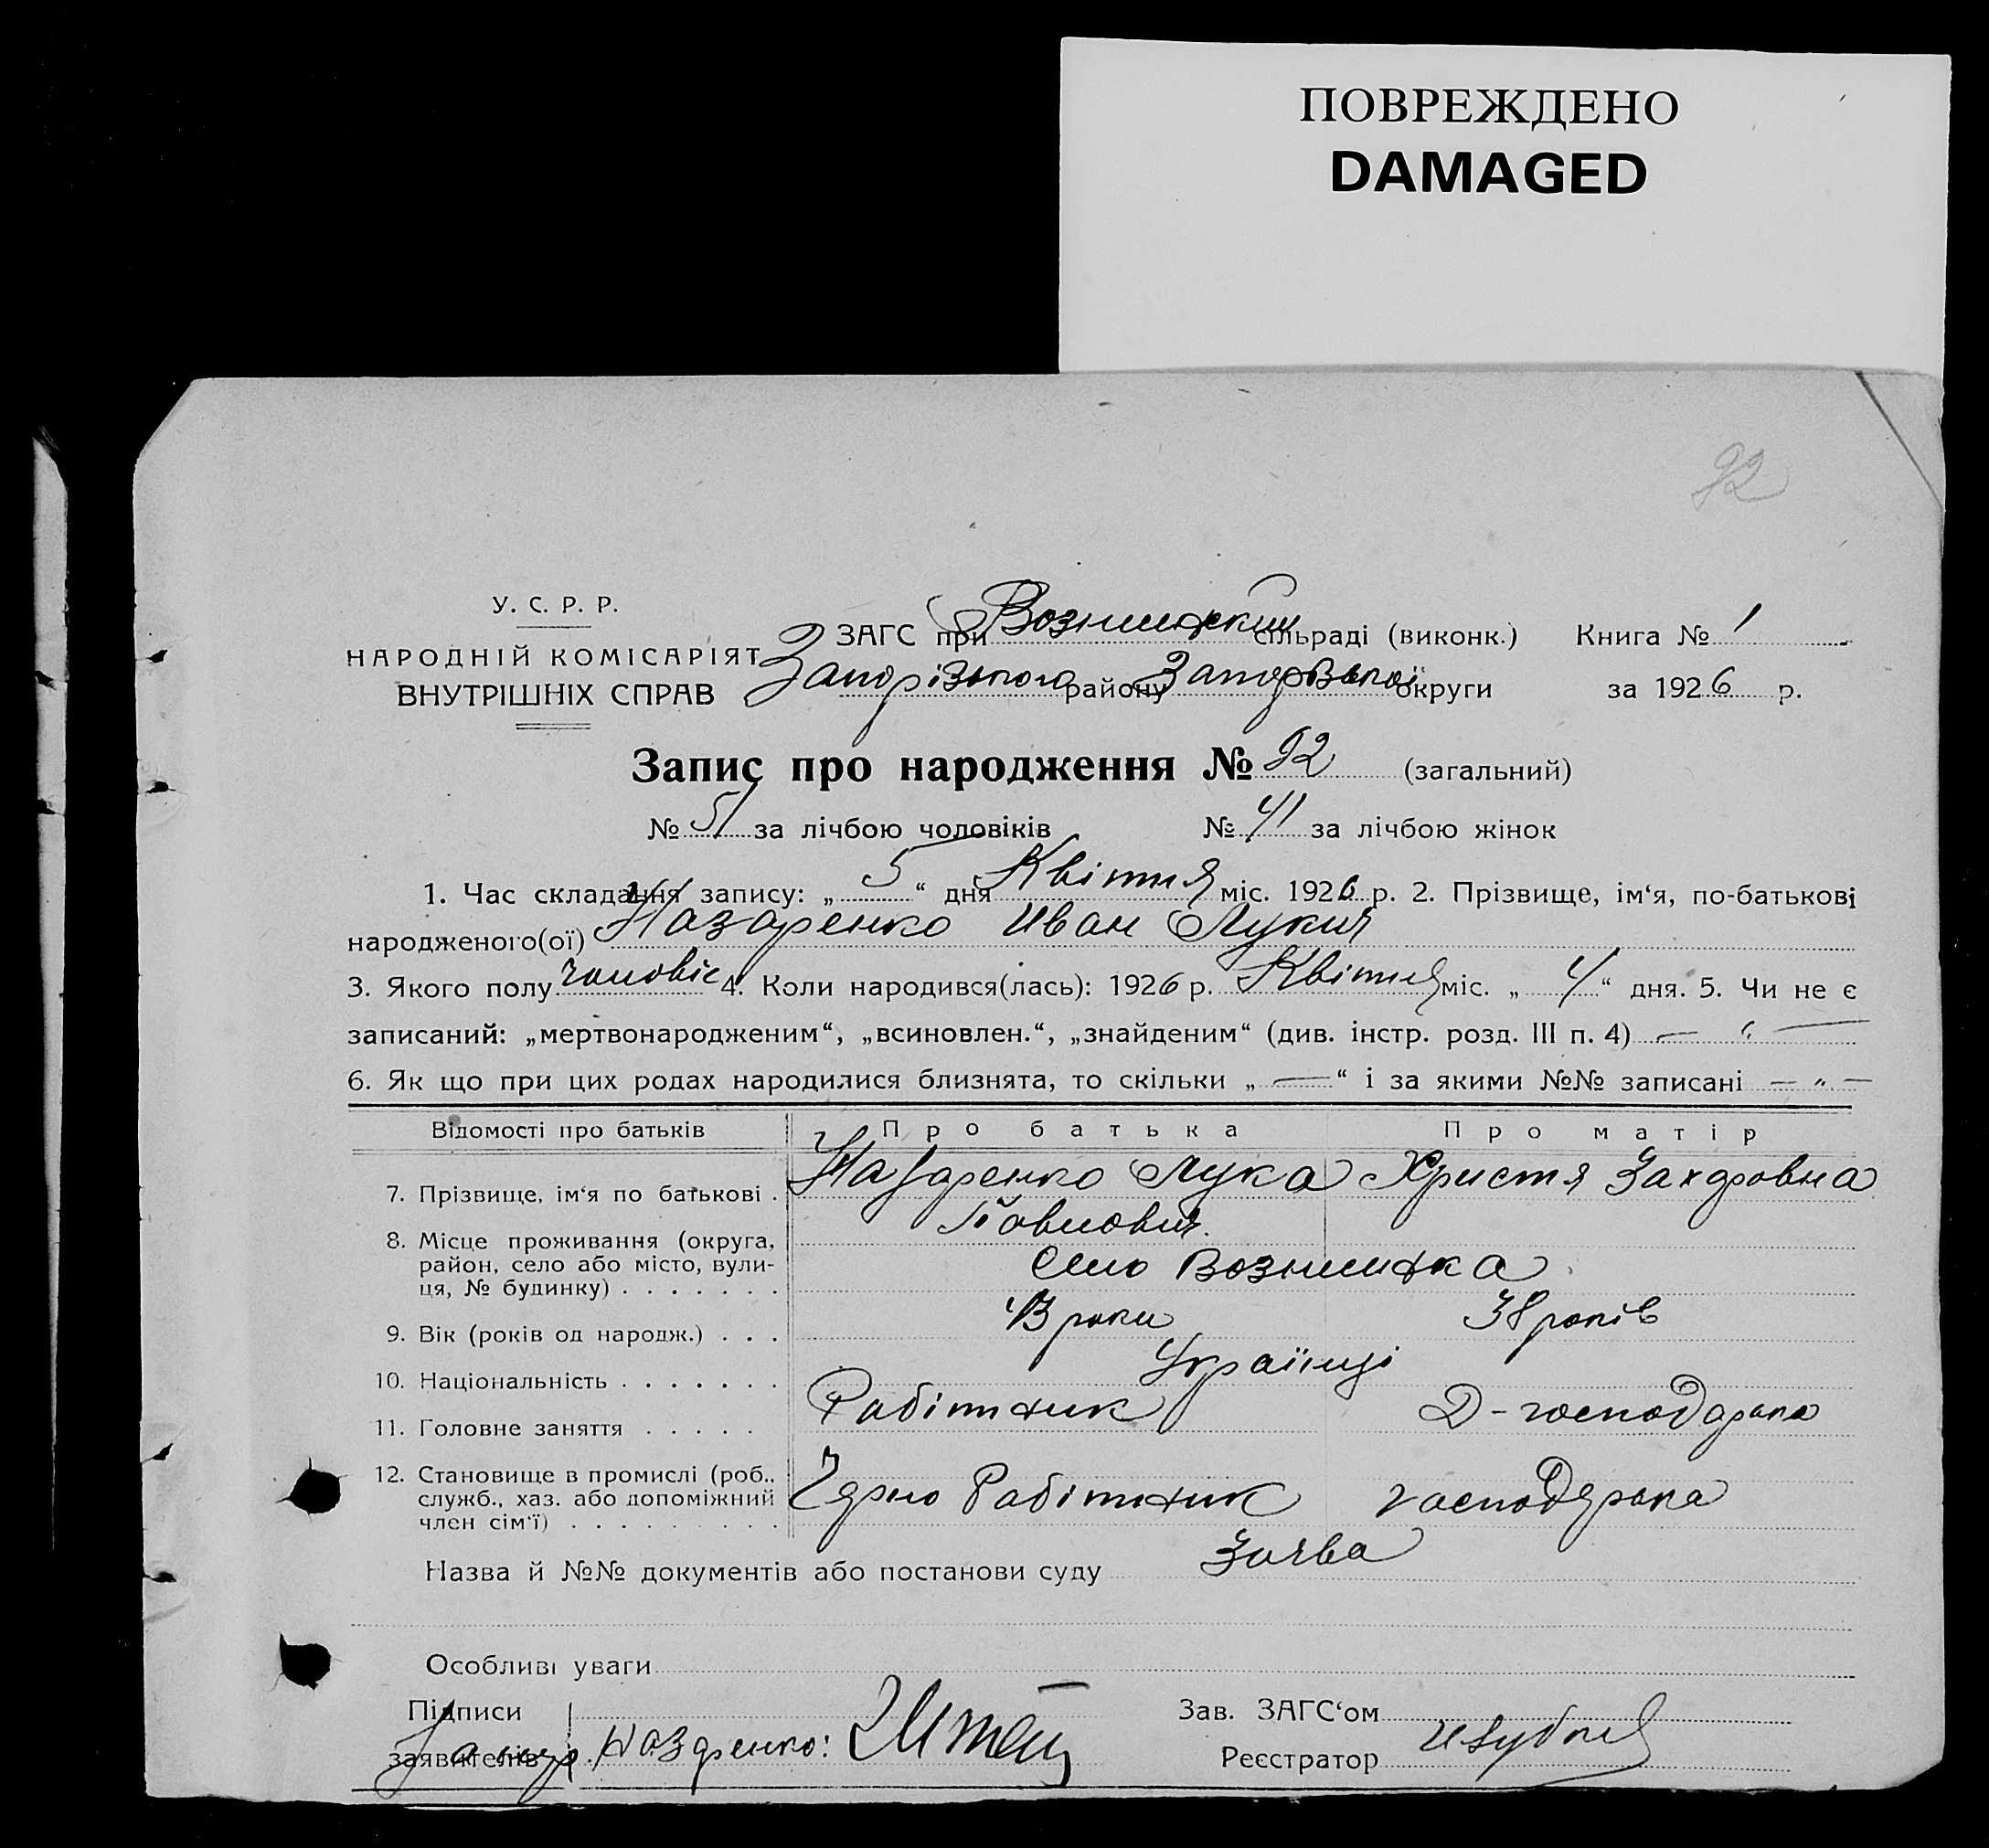 ПОВРЕЖДЕНО
DAMAGED
92
У. С. Р. Р.
НАРОДНІЙ КОМІСАРІЯТ
ВНУТРІШНІХ СПРАВ
ЗАГС при Вознишский сільраді (виконк.) Книга № 1
Запорізького району Запорізької округи за 1926 р.
Запис про народження № 92 (загальний)
№ 51 за лічбою чоловіків № 41 за лічбою жінок
1. Час складання запису: „ 5 “ дня Квітня міс. 1926 р. 2. Прізвище, ім‘я, по-батькові
народженого(ої) Назаренко Иван Лукич
3. Якого полу чоловіс 4. Коли народився(лась): 1926 р. Квітня міс. „ 4 “ дня. 5. Чи не є
записаний: „мертвонародженим“, „всиновлен.“, „знайденим“ (див. інстр. розд. III п. 4) — “ —
6. Як що при цих родах народилися близнята, то скільки „ — “ і за якими №№ записані — „ —
Відомості про батьків Про батька Про матір
7. Прізвище, ім‘я по батькові . Назаренко Лука Павлович Христя Захаровна
8. Місце проживання (округа,
район, село або місто, вули-
ця, № будинку) . . . . . . . Село Вознишка
9. Вік (років од народж.) . . . 43 роки 38 років
10. Національність . . . . . . . Українці
11. Головне заняття . . . . . Рабітник Д-господарка
12. Становище в промислі (роб.,
служб., хаз. або допоміжний
член сім‘ї) . . . . . . . . . Чорно Рабітник господарка
Назва й №№ документів або постанови суду Заява
Особливі уваги
Підписи
заявителів Назаренко:
Зав. ЗАГС‘ом
Реєстратор